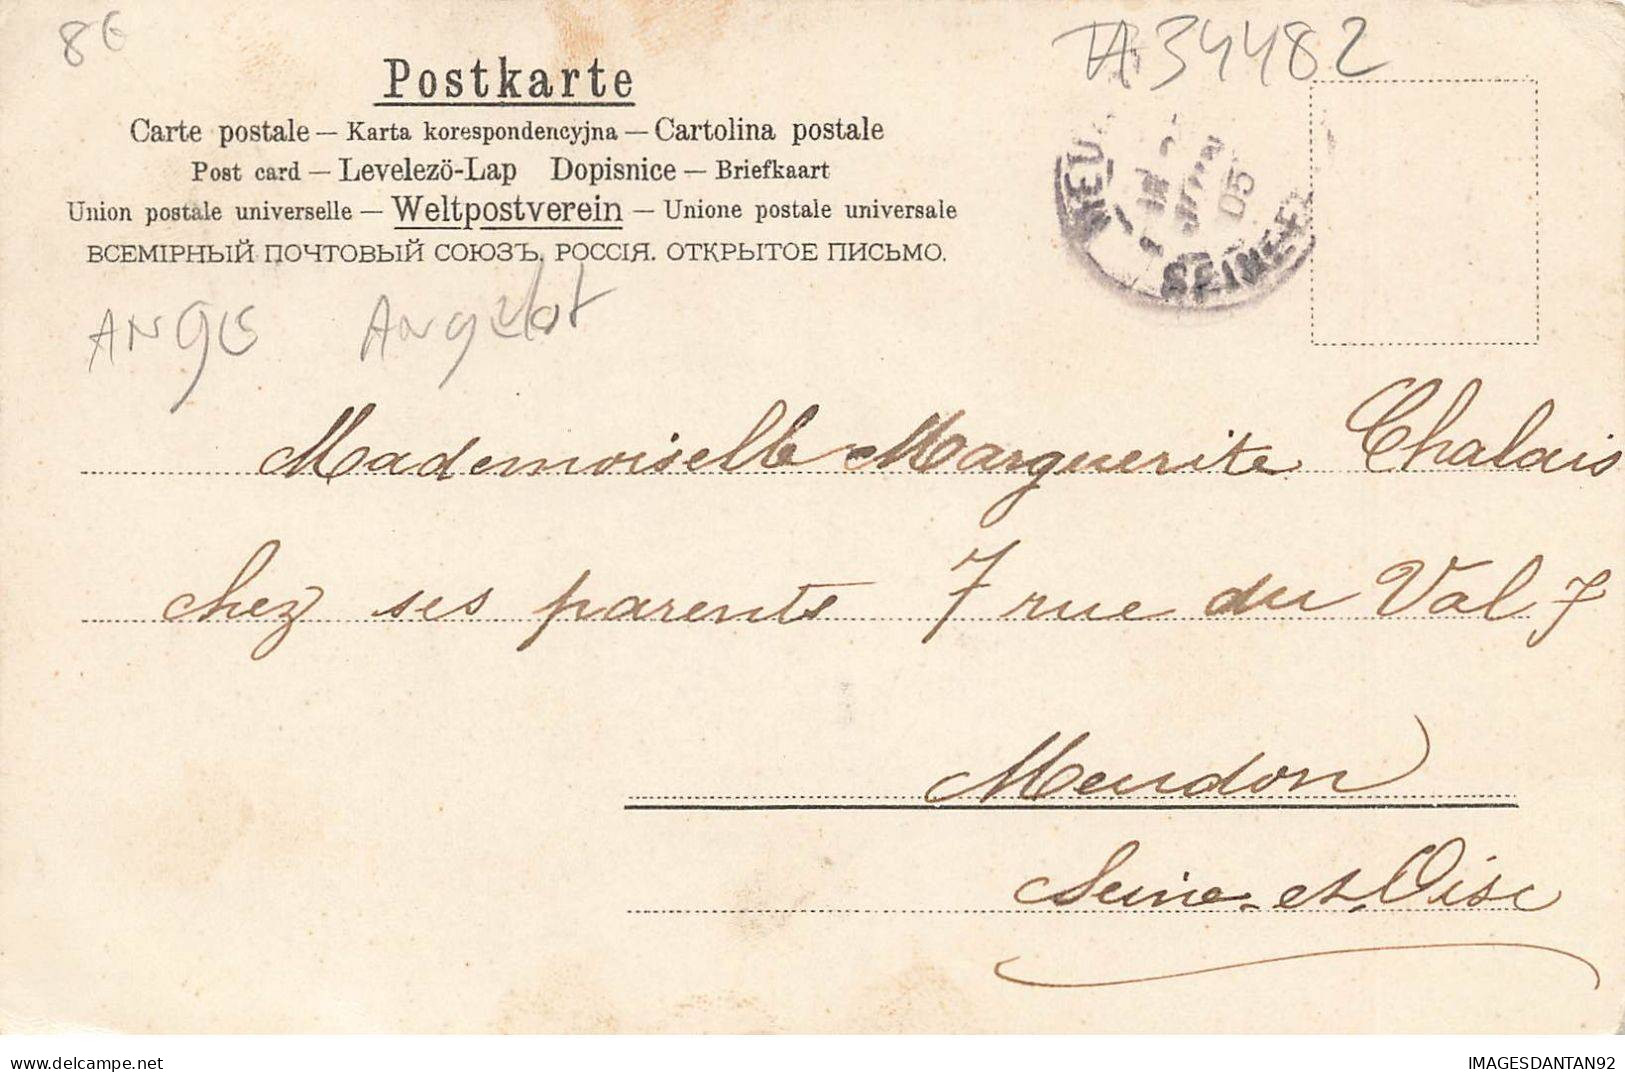 8€
TA34482
Postkarte
Carte postale — Karta korespondencyjna — Cartolina postale
Post card — Levelezö-Lap Dopisnice — Briefkaart
Union postale universelle — Weltpostverein — Unione postale universale
ВСЕМІРНЫЙ ПОЧТОВЫЙ СОЮЗЪ. РОССІЯ. ОТКРЫТОЕ ПИСЬМО.
05
SEINE-E
ANGE Angelot
Mademoiselle Marguerite Chalais
chez ses parents 7 rue du Val 7
Meudon
Seine-et-Oise
www.delcampe.net
IMAGESDANTAN92